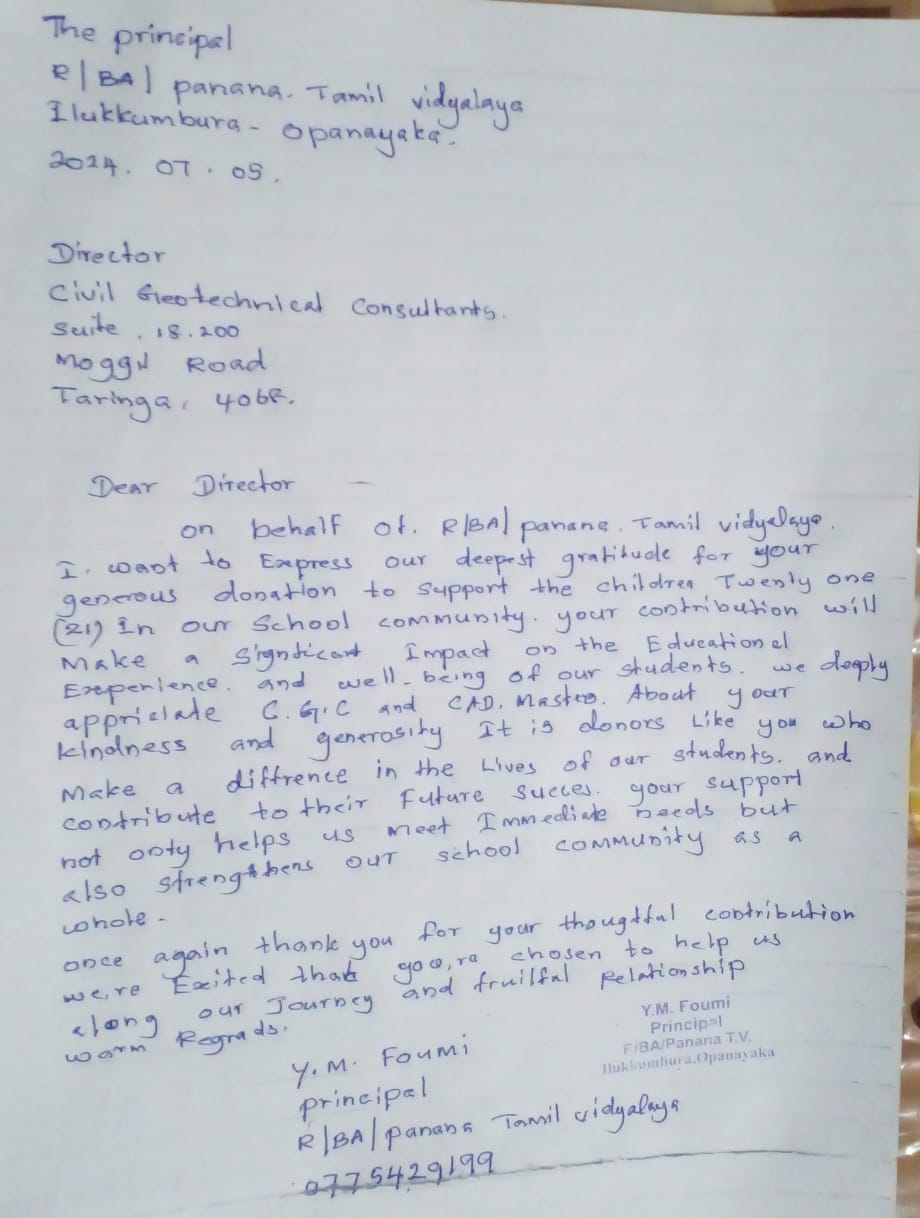 The principal
R/BA/ panana. Tamil vidyalaya
Ilukkumbura - Opanayaka.
2024. 07. 05.
Director
Civil Geotechnical Consultants.
Suite, 18.200
Moggil Road
Taringa, 4068.
Dear Director
on behalf of. R/BA/ panana. Tamil vidyalaya.
I. want to Express our deepest gratitude for your
generous donation to support the children Twenty one
(21) In our School community. your contribution will
Make a Significant Impact on the Educational
Experience. and well-being of our students. we deeply
appriciate C.G.C and CAD, Masters. About your
kindness and generosity It is donors Like you who
Make a diffrence in the Lives of our students. and
contribute to their Future Succes. your support
not only helps us meet Immediate needs but
also strengthens our school community as a
whole.
once again thank you for your thougtful contribution
we,re Exited that you,re chosen to help us
along our Journey and fruilful Relationship
warm Regrads.
Y.M. Foumi
Principal
F/BA/Panana T.V.
Ilukkumbura,Opanayaka
Y.M. Foumi
principal
R/BA/panana Tamil vidyalaya
0775429199